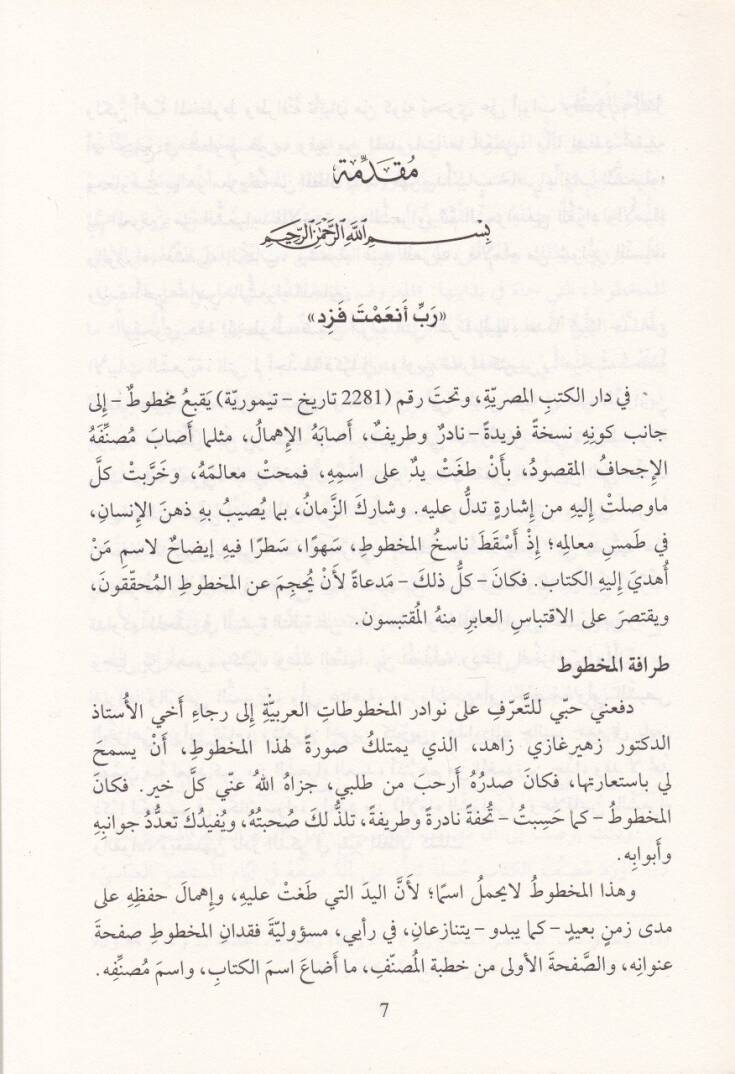 مُقدِّمة
بِسْمِ اللَّهِ الرَّحْمَنِ الرَّحِيمِ
«رَبِّ أَنعَمْتَ فَزِد»
في دار الكتبِ المصريّةِ، وتحتَ رقم (2281 تاريخ – تيموريّة) يَقبعُ مخطوطٌ – إلى
جانب كونِهِ نسخةً فريدةً – نادرٌ وطريفٌ، أصابَهُ الإهمالُ، مثلما أصابَ مُصنِّفَهُ
الإجحافُ المقصودُ، بأَنْ طغَتْ يدٌ على اسمِهِ، فمحتْ معالمَهُ، وخَرَّبتْ كلَّ
ماوصلتْ إليهِ من إشارةٍ تدلُّ عليه. وشاركَ الزَّمانُ، بما يُصيبُ بهِ ذهنَ الإنسانِ،
في طَمسِ معالِمه؛ إذْ أسْقَطَ ناسخُ المخطوطِ، سَهوًا، سَطرًا فيهِ إيضاحٌ لاسمِ مَنْ
أُهديَ إليهِ الكتاب. فكانَ – كلُّ ذلكَ – مَدعاةً لأَنْ يُحجِمَ عن المخطوطِ المُحقّقون،
ويقتصرَ على الاقتباسِ العابرِ منهُ المُقتبسون.
طرافة المخطوط
دفعني حبّي للتَّعرّفِ على نوادر المخطوطاتِ العربيّةِ إلى رجاءِ أخي الأُستاذ
الدكتور زهيرغازي زاهد، الذي يمتلكُ صورةً لهذا المخطوطِ، أَنْ يسمحَ
لي باستعارتها، فكانَ صدرُهُ أرحبَ من طلبي، جزاهُ اللهُ عنّي كلَّ خير. فكانَ
المخطوطُ – كما حَسِبتُ – تُحفةً نادرةً وطريفةً، تلذُّ لكَ صُحبتُهُ، ويُفيدُكَ تعدُّدُ جوانبِهِ
وأبوابِه.
وهذا المخطوطُ لايحملُ اسمًا؛ لأَنَّ اليدَ التي طَغتْ عليهِ، وإهمالَ حفظِهِ على
مدى زمنٍ بعيدٍ – كما يبدو – يتنازعانِ، في رأيي، مسؤوليّةَ فقدانِ المخطوطِ صفحةَ
عنوانِه، والصَّفحةَ الأولى من خطبة المُصنّفِ، ما أضاعَ اسمَ الكتابِ، واسمَ مُصنِّفِه.
7